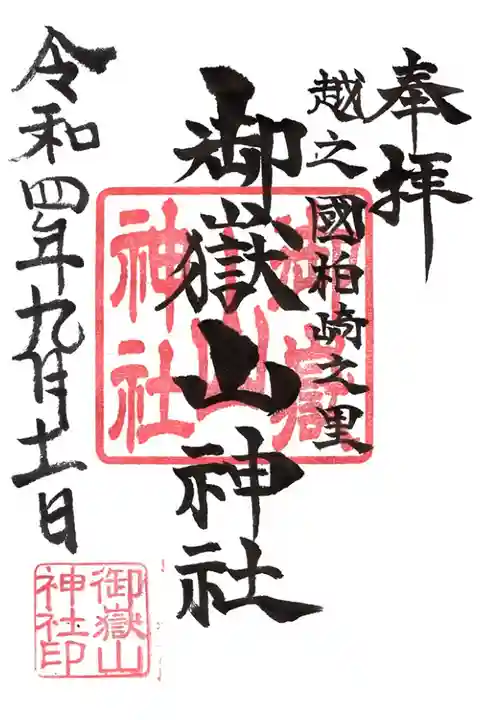 奉拝
越之國柏崎之里
御嶽山神社
令和四年九月十一日
御嶽山
神社
御嶽山
神社印